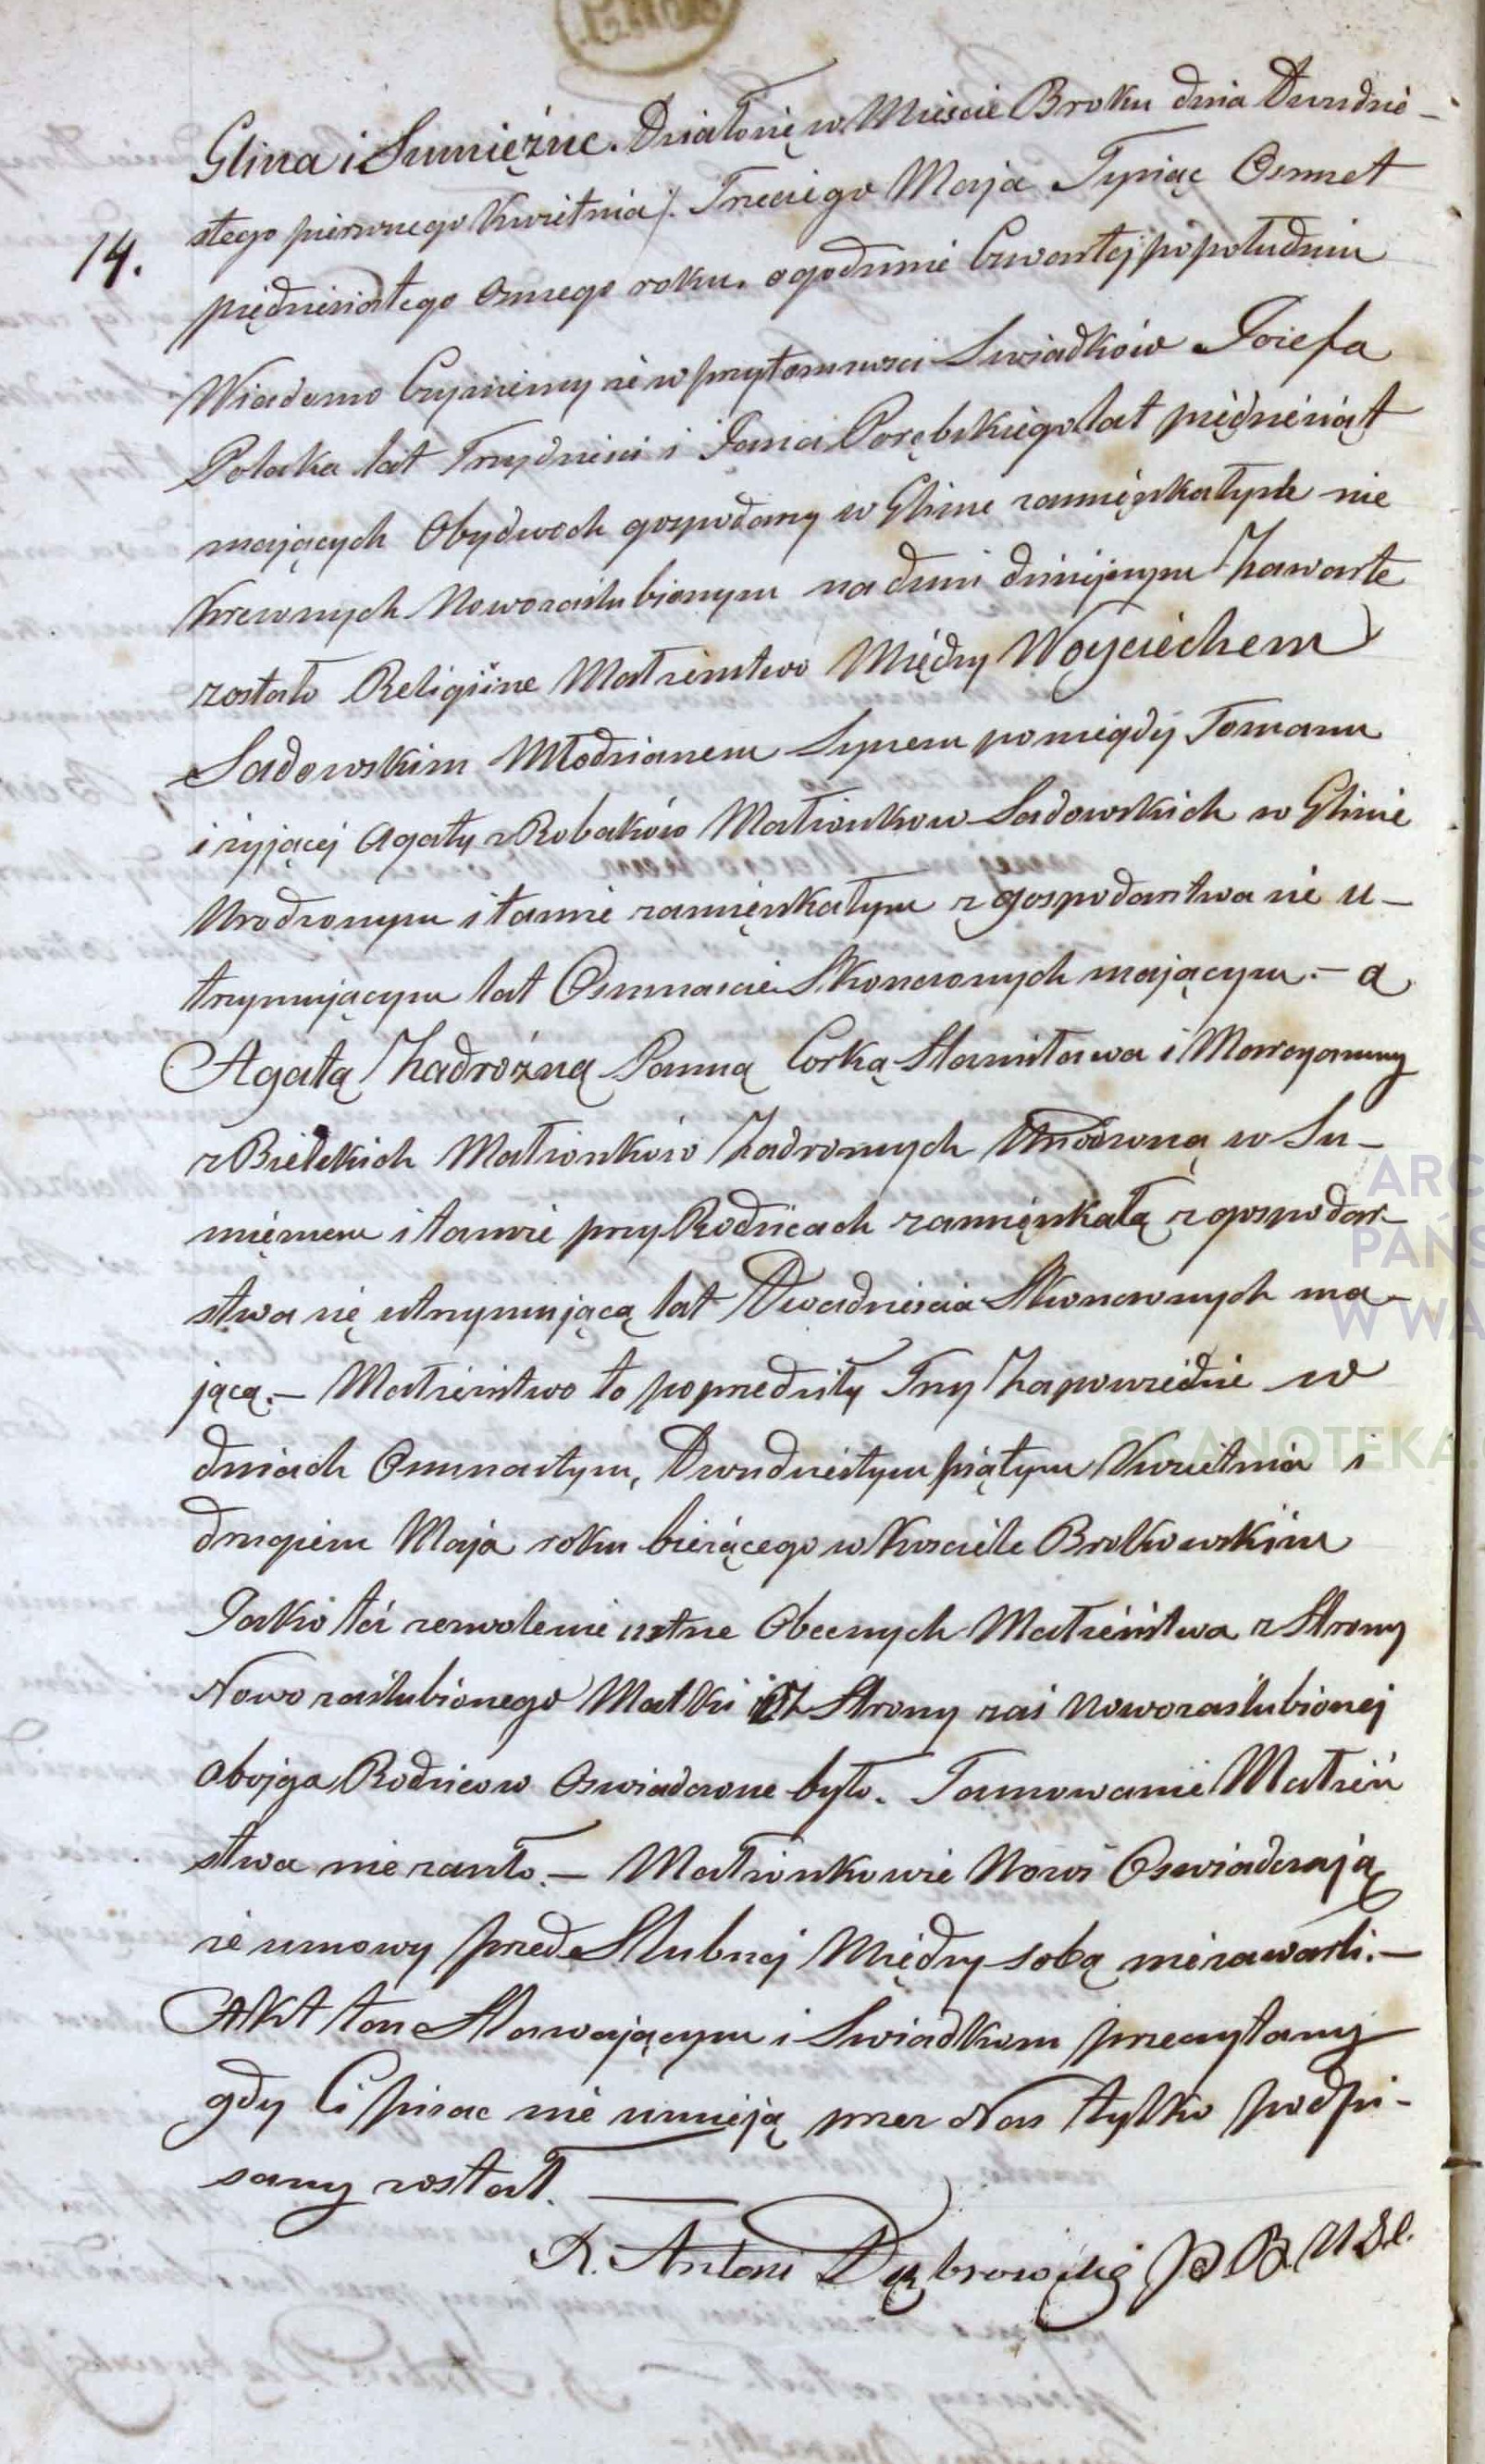 Glina i Sumiężne. Działo się w Mieście Broku dnia Dwudzie-
stego pierwszego Kwietnia /. Trzeciego Maja Tysiąc Osmset
14.
piędziesiątego osmego roku. o godzinie Czwartej popołudniu
Wiadomo Czyniemy że w przytomnosci Swiadków Jozefa
Polaka lat Trzydzieści i Jana Porębskiego lat pięđziesiąt
mających Obydwoch gospodarzy w Glinie zamięszkałych nie
krewnych Nowozaslubionym na dniu dzisiejszym Zawarte
zostało Religiine Małżenstwo Między Woyciechem
Sadowskim Młodzianem Synem po niegdy Tomaszu
i żyjącej Agaty z Robaków Małżonkow Sadowskich w Glinie
Urodzonym i tamże zamięszkałym z gospodarstwa się u-
trzymującym lat Osmnascie Skonczonych mającym. - a
Agatą Zadrożną Panną Corką Stanisława i Marcyanny
z Bielskich Małżonków Zadroznych Urodzoną w Su-
mięznem i tamże przy Rodzicach zamięszkałą z gospodar-
stwa się utrzymującą lat Dwadziescia Skonczonych ma-
jącą. - Małżeństwo to poprzedziły Trzy Zapowiedzie w
dniach Osmnastym, Dwudziestym piątym Kwietnia i
drugiem Maja roku bieżącego w Kosciele Brokowskim
Jako też zezwolenie ustne Obecnych Małżeństwa z Strony
Nowozaslubionego Matki Z Strony zaś Nowozaslubionej
obojga Rodzicow Oswiadczone było. Tamowanie Małżeń
stwa nie zaszło. - Małżonkowie Nowi Oswiadczają
że umowy przed Slubnej Między sobą nie zawarli. -
Akt ten Stawającym i Swiadkom przeczytany
gdy Ci pisac nie umieją przez Nas tylko podpi-
sany został.
X. Antoni Dąbrowski P B U S C.
ARC
PAŃS
W WA
SKANOTEKA.